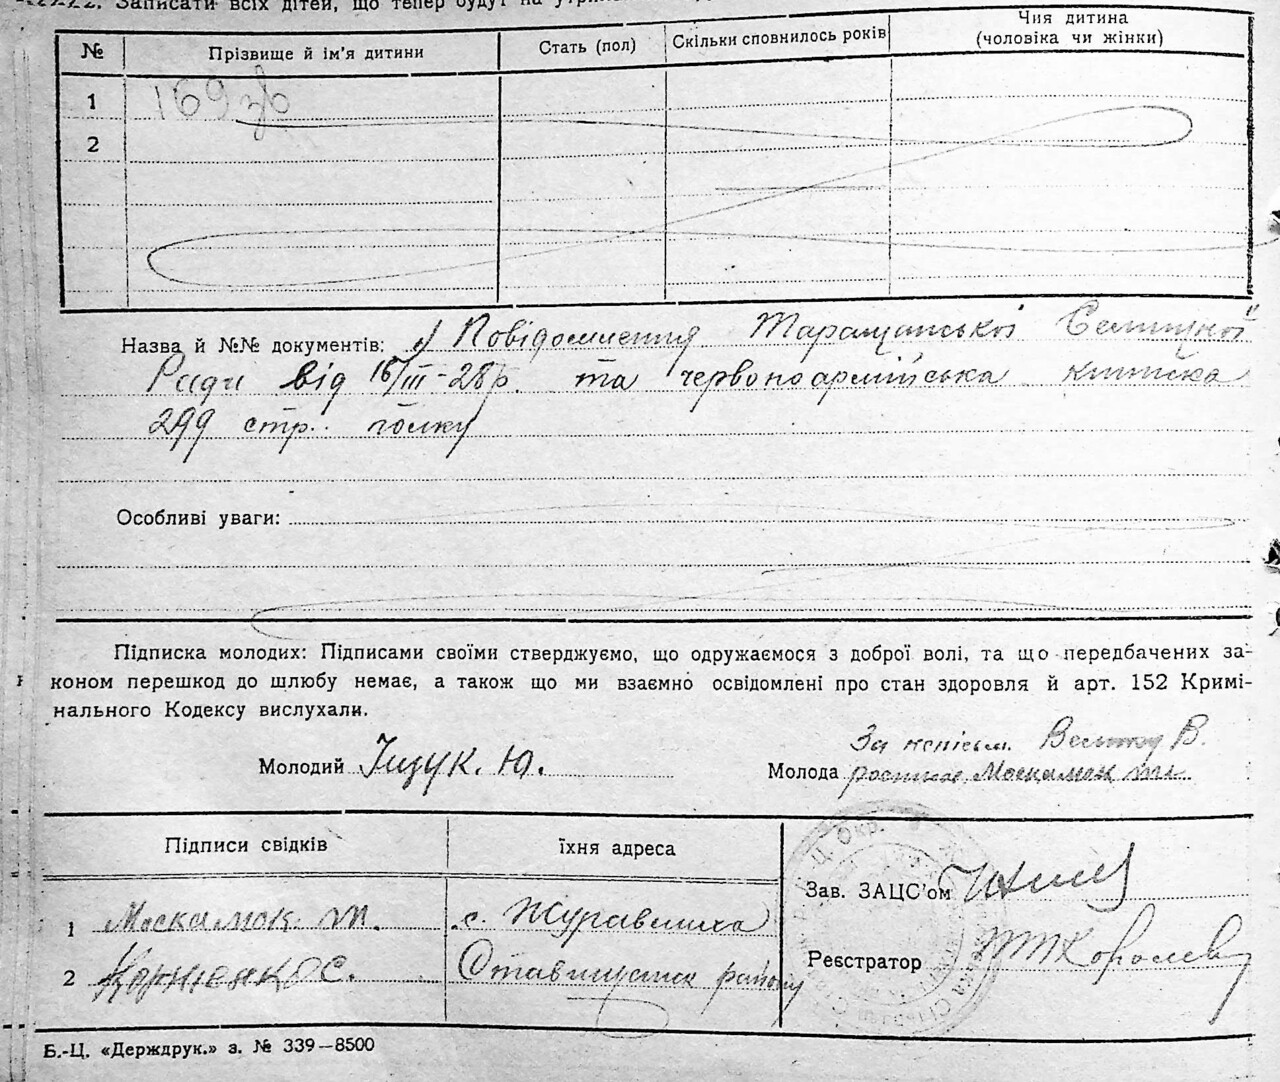 22. Записати всіх дітей, що тепер будут на
№ Прізвище й ім'я дитини Стать (пол) Скільки сповнилось років Чия дитина (чоловіка чи жінки)
1 169 зв
2
Назва й №№ документів: 1) Повідомлення Таращанської Селищної
Ради від 16/III-28р. та червоноармійська книжка
299 стр. полку
Особливі уваги:
Підписка молодих: Підписами своїми стверджуємо, що одружаємося з доброї волі, та що передбачених за-
коном перешкод до шлюбу немає, а також що ми взаємно освідомлені про стан здоровля й арт. 152 Кримі-
нального Кодексу вислухали.
За неписьм. В.
Молодий Іщук. Ю. Молода Москалюк
Підписи свідків їхня адреса
Зав. ЗАЦС'ом
1 Москалюк. с. Журавлиха
Реєстратор Королев
2 Корнієнко С. Ставищанск району
Б.-Ц. «Держдрук.» з. № 339—8500